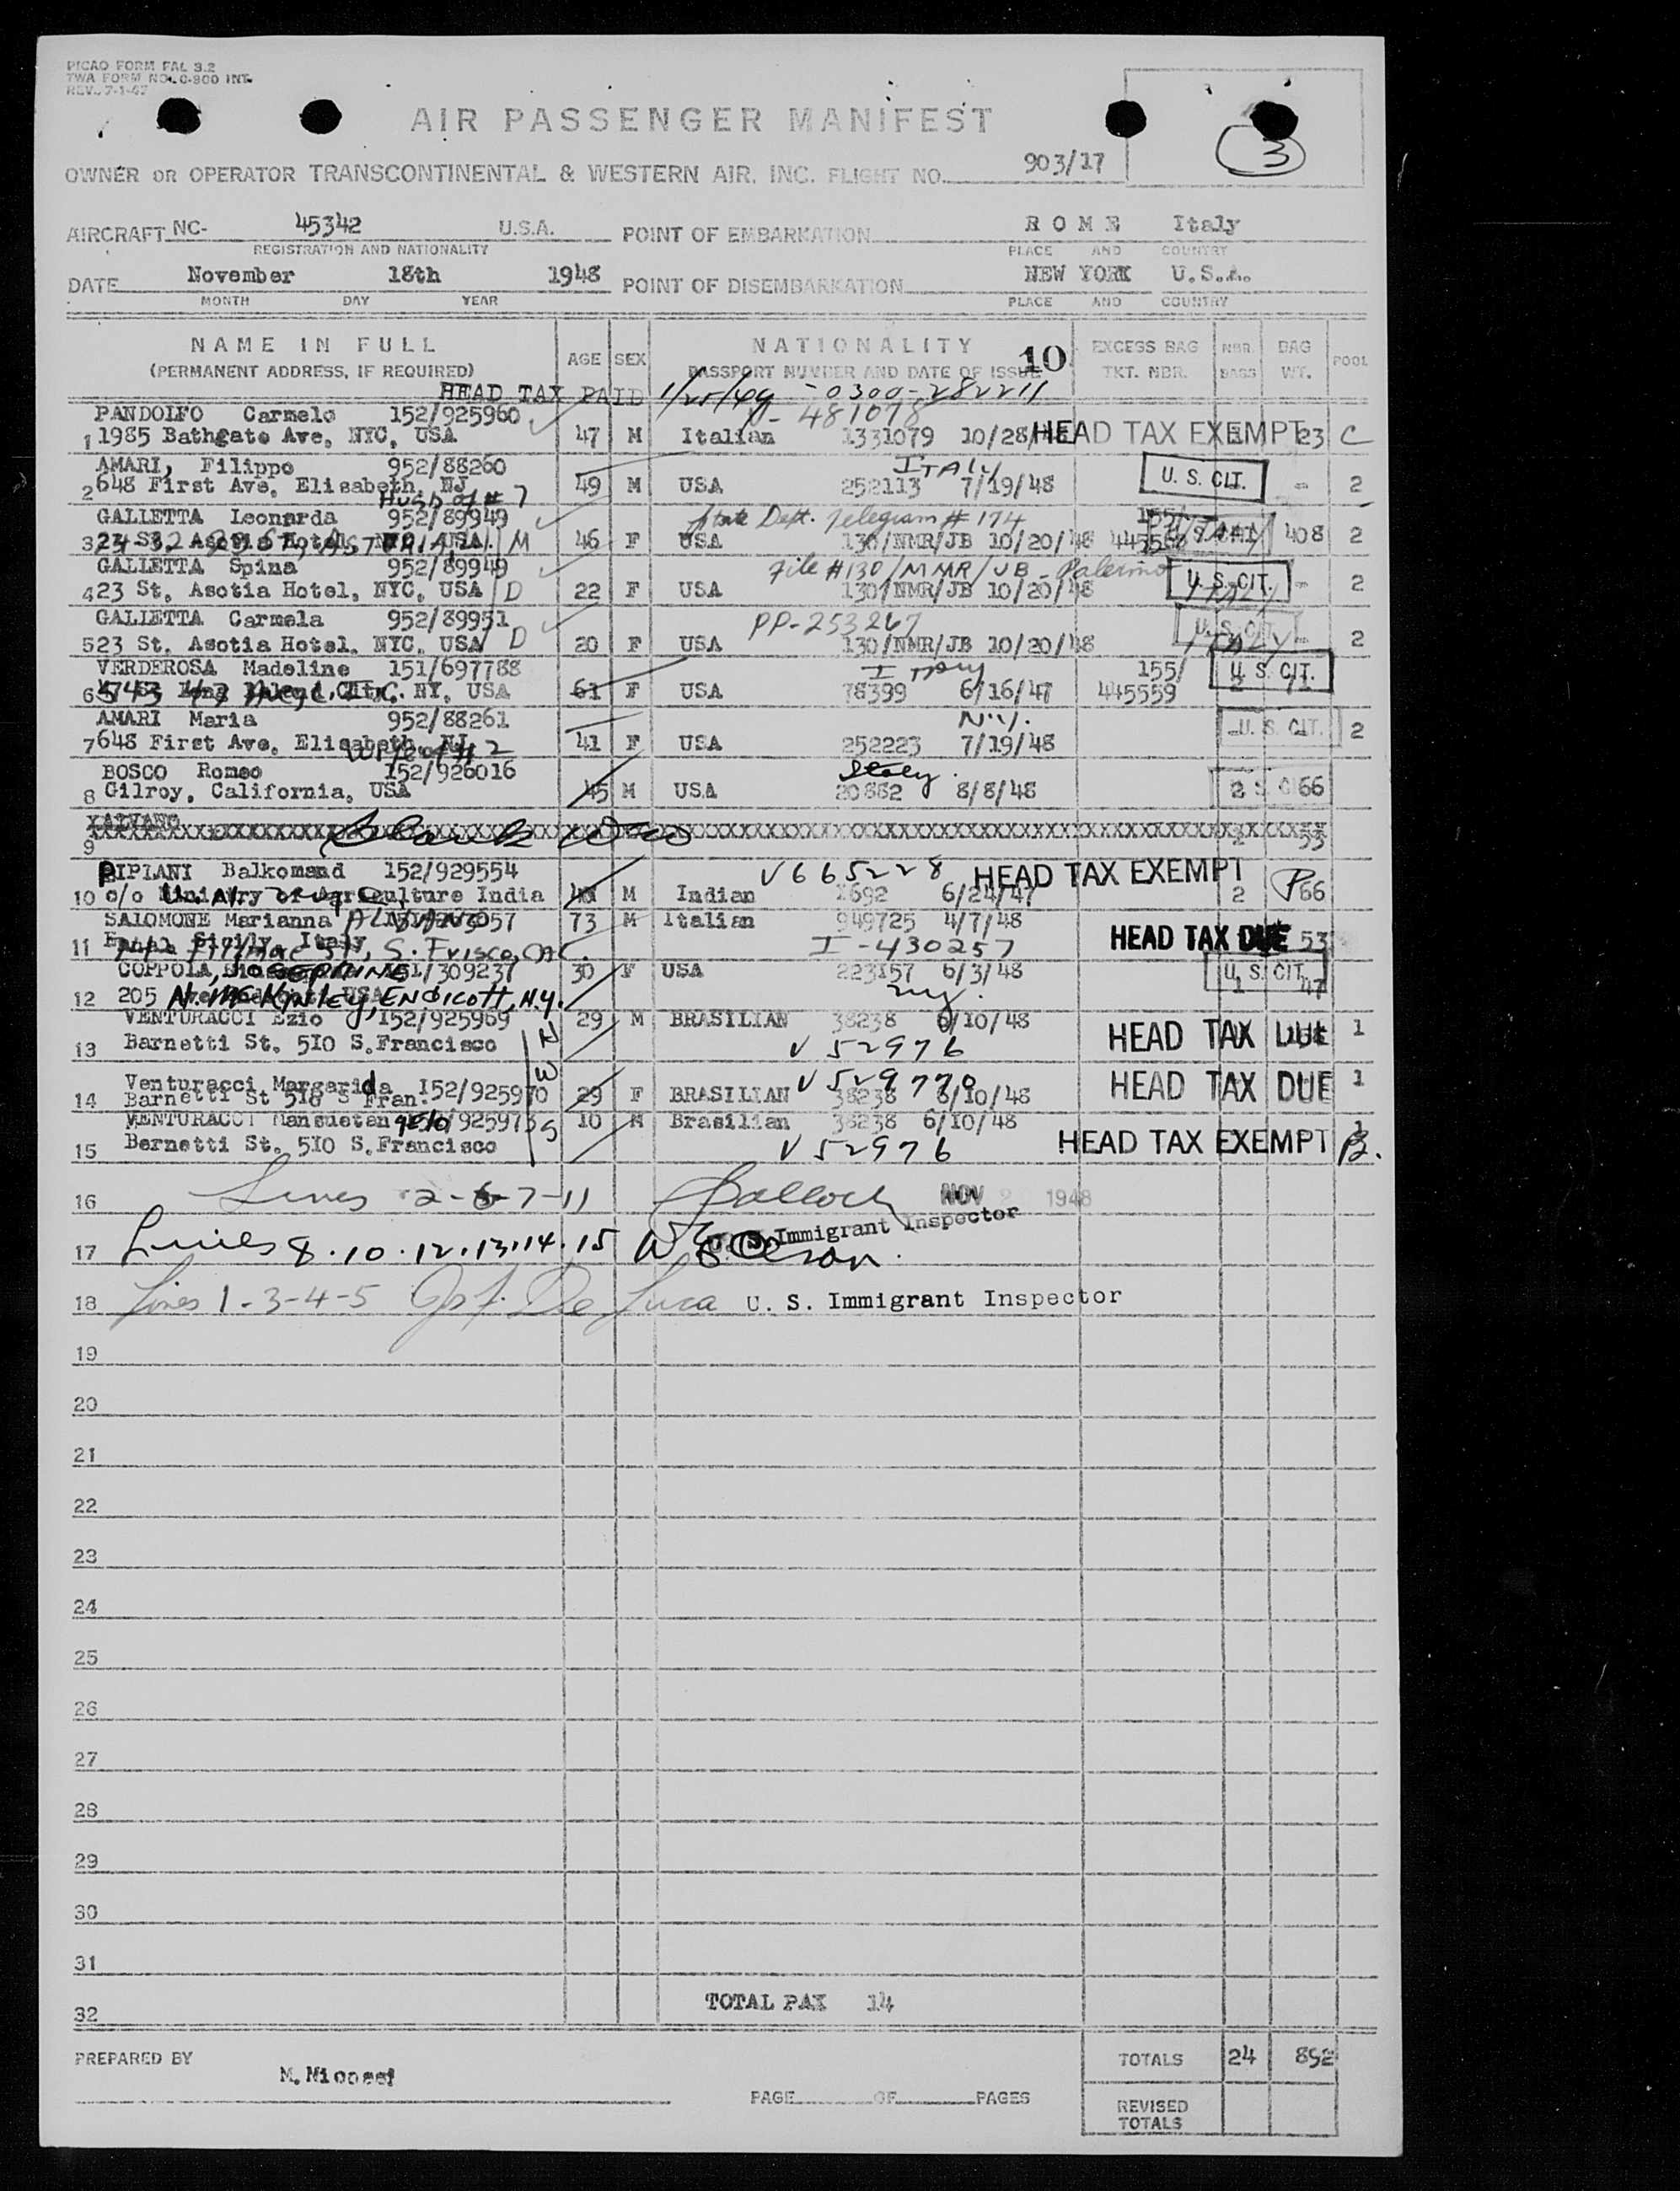 PICAO FORM FAL 3.2
TWA FORM NO. O-900 INT.
REV. 7-1-47
AIR PASSENGER MANIFEST
3
OWNER OR OPERATOR TRANSCONTINENTAL & WESTERN AIR, INC. FLIGHT NO. 903/17
AIRCRAFT NC- 45342 U.S.A. POINT OF EMBARKATION R O M E Italy
REGISTRATION AND NATIONALITY PLACE AND COUNTRY
DATE November 18th 1948 POINT OF DISEMBARKATION NEW YORK U.S.A.
MONTH DAY YEAR PLACE AND COUNTRY
NAME IN FULL AGE SEX NATIONALITY 10 EXCESS BAG NBR. BAG POOL
(PERMANENT ADDRESS, IF REQUIRED) PASSPORT NUMBER AND DATE OF ISSUE TKT. NBR. BAGS WT.
HEAD TAX PAID 1/25/49 - 0300-282211
PANDOLFO Carmelo 152/925960 481078
1 1985 Bathgate Ave, NYC, USA 47 M Italian 1331079 10/28/48 HEAD TAX EXEMPT 23 C
AMARI, Filippo 952/88260 ITALY
2 648 First Ave, Elisabeth, NJ 49 M USA 252113 7/19/48 U. S. CIT. - 2
Husb of # 7
GALLETTA Leonarda 952/89949 State Dept. Telegram # 174 155/
3 23 St. Asotia Hotel, NYC, USA M 46 F USA 130/NMR/JB 10/20/48 408 2
GALLETTA Spina 952/89949 File #130/MMR/JB - Palermo
4 23 St. Asotia Hotel, NYC, USA D 22 F USA 130/NMR/JB 10/20/48 U. S. CIT. ITALY - 2
GALLETTA Carmela 952/89951 PP-253267
5 23 St. Asotia Hotel, NYC, USA D 20 F USA 130/NMR/JB 10/20/48 U. S. CIT. ITALY - 2
VERDEROSA Madeline 151/697788 Italy 155/
6 NY, USA 61 F USA 78399 6/16/47 445559 U. S. CIT.
AMARI Maria 952/88261 N.Y.
7 648 First Ave, Elisabeth, NJ 41 F USA 252223 7/19/48 U. S. CIT. 2
Wife of # 2
BOSCO Romeo 152/926016 Italy
8 Gilroy, California, USA 45 M USA 20882 8/8/48 2 66
9 53
PIPLANI Balkomand 152/929554 V665228 HEAD TAX EXEMPT
10 c/o Ministry of Agriculture India M Indian 6/24/47 2 P66
SALOMONE Marianna ALBANO 73 M Italian 949725 4/7/48
11 Sicily, Italy S. Frisco, CAL. I-430257 HEAD TAX DUE 53
COPPOLA, 151/309237 30 F USA 223157 6/3/48 U. S. CIT.
12 205 N. McKinley, ENDICOTT, N.Y. ny. 1 47
VENTURACCI Ezio 152/925969 29 M BRASILIAN 38238 6/10/48 1
13 Barnetti St, 5I0 S.Francisco V 52976 HEAD TAX DUE
Venturacci Margarida I52/925970 V 529770 HEAD TAX DUE 1
14 Barnetti St 5I0 S Fran. 29 F BRASILIAN 38238 6/10/48
VENTURACCI 10 M Brasilian 38238 6/10/48 1
15 Bernetti St, 5I0 S.Francisco V 52976 HEAD TAX EXEMPT B.
16 Lines 2-6-7-11 NOV 1948
U. S. Immigrant Inspector
17 Lines 8.10.12.13.14.15
18 Lines 1-3-4-5 De Luca U. S. Immigrant Inspector
19
20
21
22
23
24
25
26
27
28
29
30
31
32 TOTAL PAX 14
PREPARED BY TOTALS 24 852
PAGE OF PAGES
REVISED
TOTALS